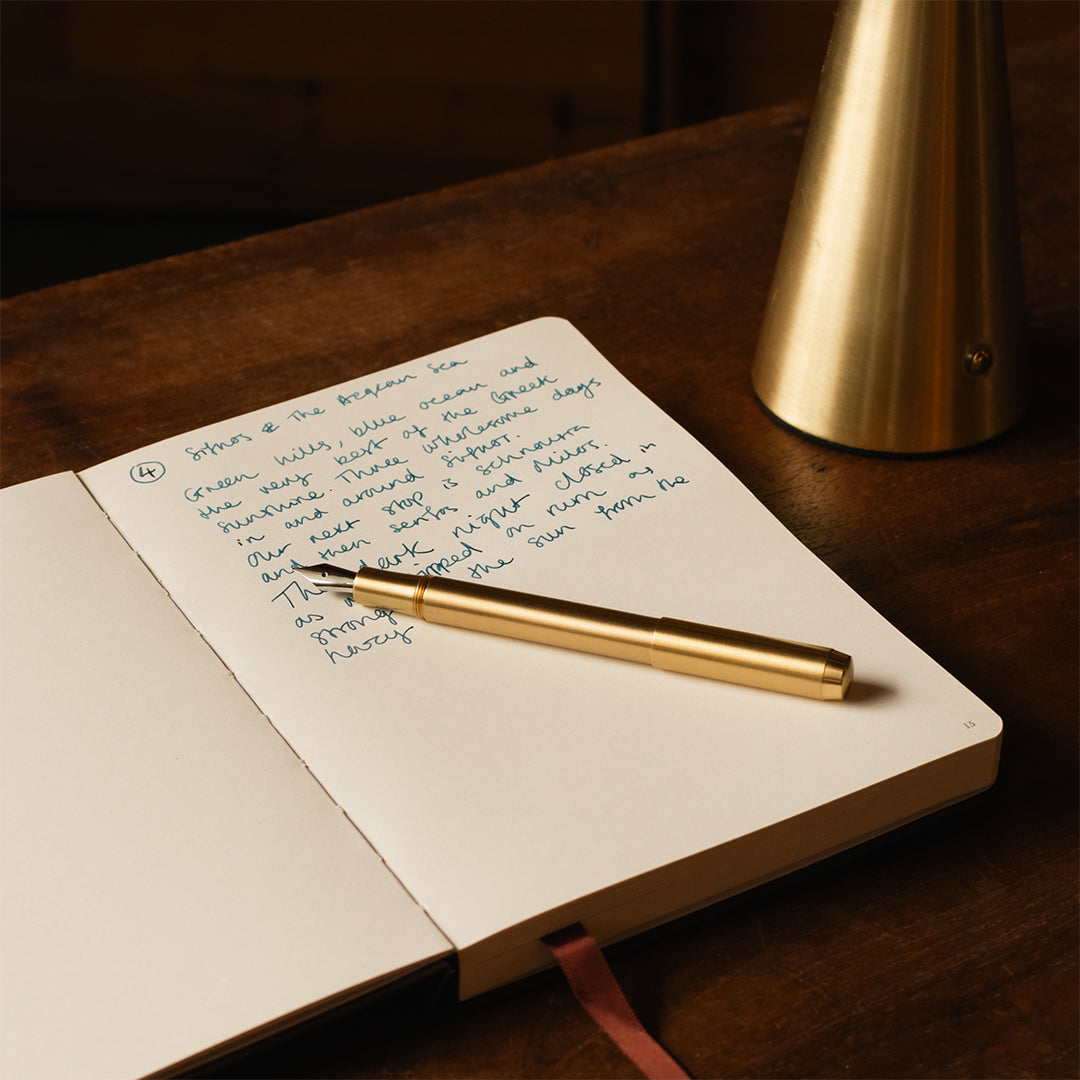 ④ Sifnos & The Aegean Sea
Green hills, blue ocean and
the very best of the Greek
sunshine. Three wholesome days
in and around Sifnos.
Our next stop is Schnoura
and then Serifos and Milos.
The dark night closed in
as we sipped on rum as
strong the sun from the
navy
15